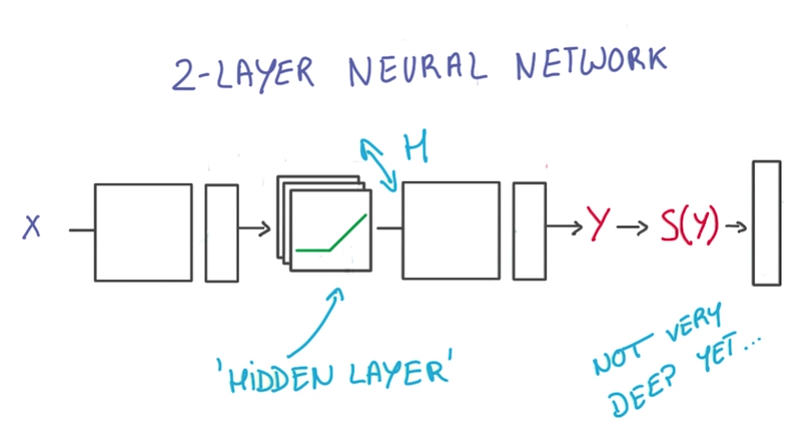 2-LAYER NEURAL NETWORK
H
X
Y → S(Y) →
'HIDDEN LAYER'
NOT VERY
DEEP YET...